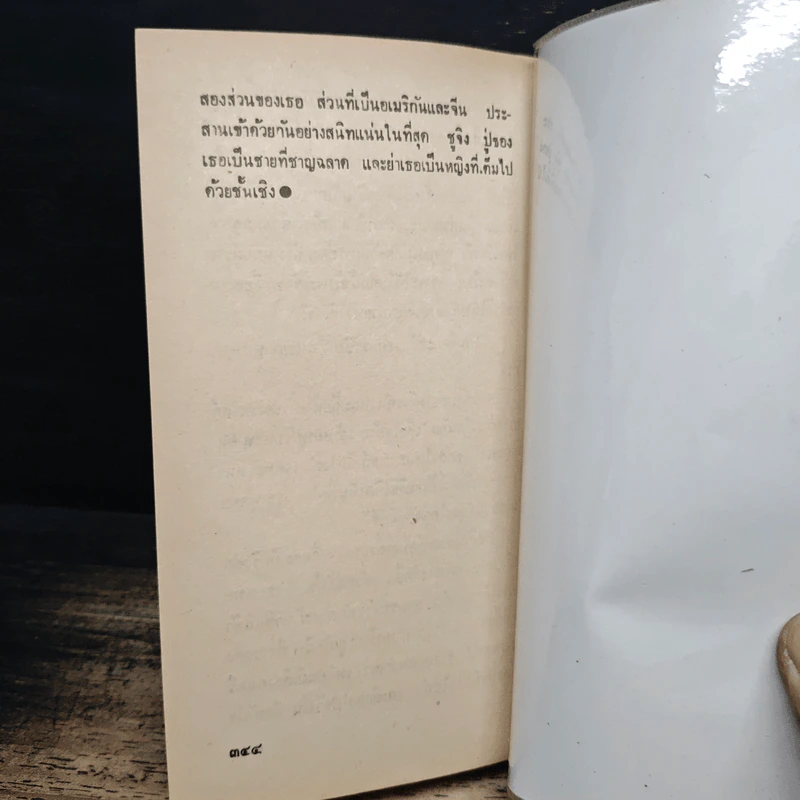 สองส่วนของเธอ ส่วนที่เป็นอเมริกันและจีน ประ-
สานเข้าด้วยกันอย่างสนิทแน่นในที่สุด ชูจิง ปู่ของ
เธอเป็นชายที่ชาญฉลาด และย่าเธอเป็นหญิงที่เต็มไป
ด้วยชั้นเชิง ●
๓๔๔